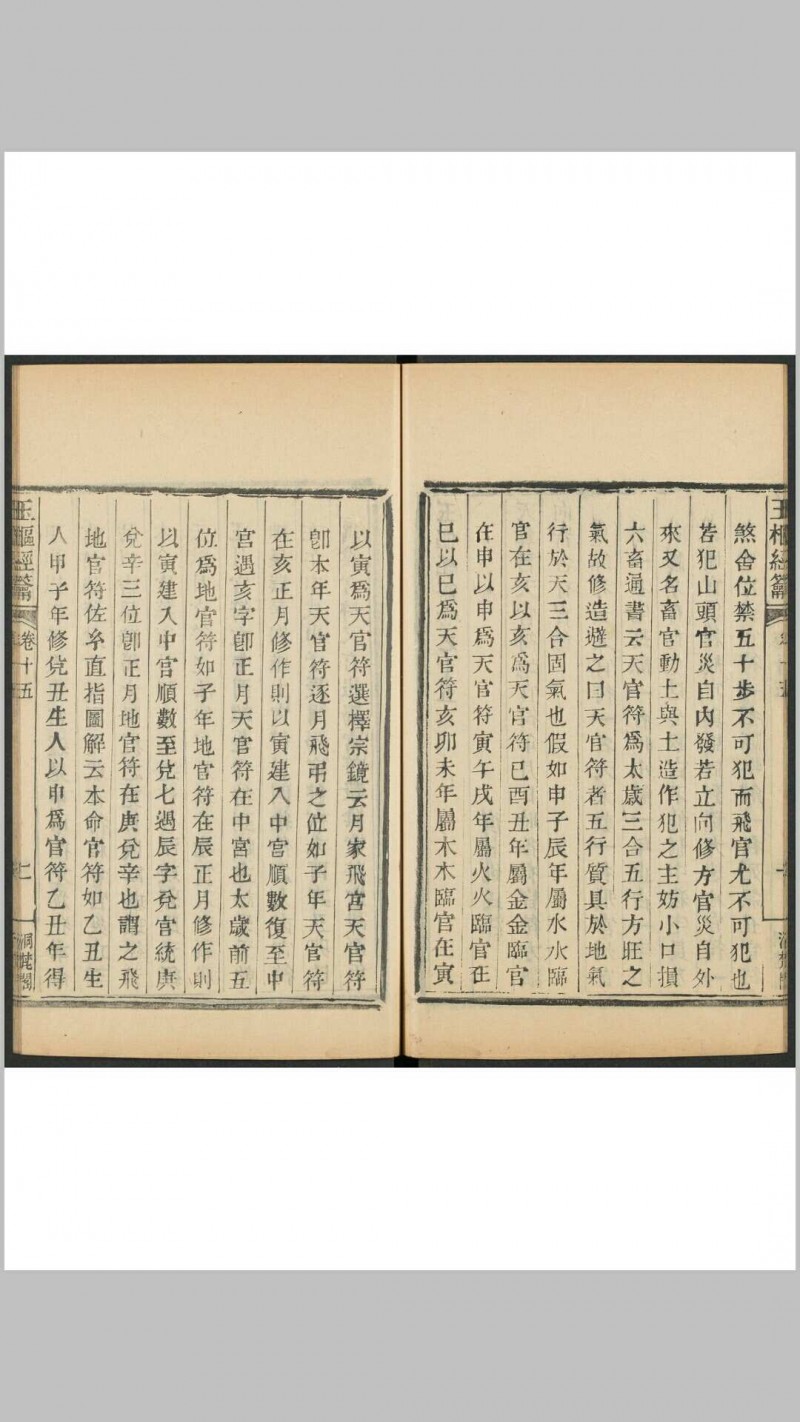 玉樞經籥
煞舍位禁五十步不可犯而飛官尤不可犯也
若犯山頭官災自內發若立向修方官災自外
來又名畜官動土與土造作犯之主妨小口損
六畜通書云天官符爲太歲三合五行方旺之
氣故修造避之曰天官符者五行質具於地氣
行於天三合固氣也假如申子辰年屬水水臨
官在亥以亥爲天官符巳酉丑年屬金金臨官
在申以申爲天官符寅午戌年屬火火臨官在
巳以巳爲天官符亥卯未年屬木木臨官在寅
以寅爲天官符選擇宗鏡云月家飛宮天官符
卽本年天官符逐月飛弔之位如子年天官符
在亥正月修作則以寅建入中宮順數復至中
宮遇亥字卽正月天官符在中宮也太歲前五
位爲地官符如子年地官符在辰正月修作則
以寅建入中宮順數至兌七遇辰字兌官統庚
兌辛三位卽正月地官符在庚兌辛也謂之飛
地官符佐玄直指圖解云本命官符如乙丑生
人甲子年修兌丑生人以申爲官符乙丑年得
玉樞經籥
卷十五
二